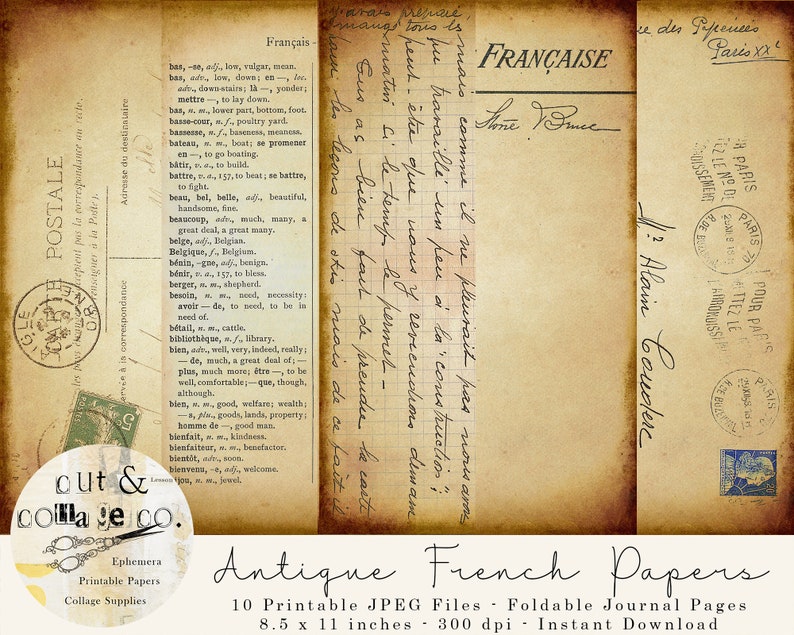 POSTALE
Adresse du destinataire
Français
bas, –se, adj., low, vulgar, mean.
bas, adv., low, down; en —, loc.
adv., down-stairs; là —, yonder;
mettre —, to lay down.
bas, n. m., lower part, bottom, foot.
basse-cour, n. f., poultry yard.
bassesse, n. f., baseness, meaness.
bateau, n. m., boat; se promener
en —, to go boating.
bâtir, v. a., to build.
battre, v. a., 157, to beat; se battre,
to fight.
beau, bel, belle, adj., beautiful,
handsome, fine.
beaucoup, adv., much, many, a
great deal, a great many.
belge, adj., Belgian.
Belgique, f., Belgium.
bénin, –gne, adj., benign.
bénir, v. a., 157, to bless.
berger, n. m., shepherd.
besoin, n. m., need, necessity:
avoir — de, to need, to be in
need of.
bétail, n. m., cattle.
bibliothèque, n. f., library.
bien, adv., well, very, indeed, really;
— de, much, a great deal of; —
plus, much more; être —, to be
well, comfortable; — que, though,
although.
bien, n. m., good, welfare; wealth;
— s, plu., goods, lands, property;
homme de —, good man.
bienfait, n. m., kindness.
bienfaiteur, n. m., benefactor.
bientôt, adv., soon.
bienvenu, –e, adj., welcome.
bijou, n. m., jewel.
mais comme il ne pleuvait pas nous avons
pu travailler un peu à la "construction";
peut-être que nous y reviendrons demain
matin si le temps le permet –
Tu as bien fait de prendre la carte
FRANÇAISE
rue des Pyrénées
Paris XXe
Mr Alain Couderc
cut &
collage co.
Ephemera
Printable Papers
Collage Supplies
Antique French Papers
10 Printable JPEG Files - Foldable Journal Pages
8.5 x 11 inches - 300 dpi - Instant Download